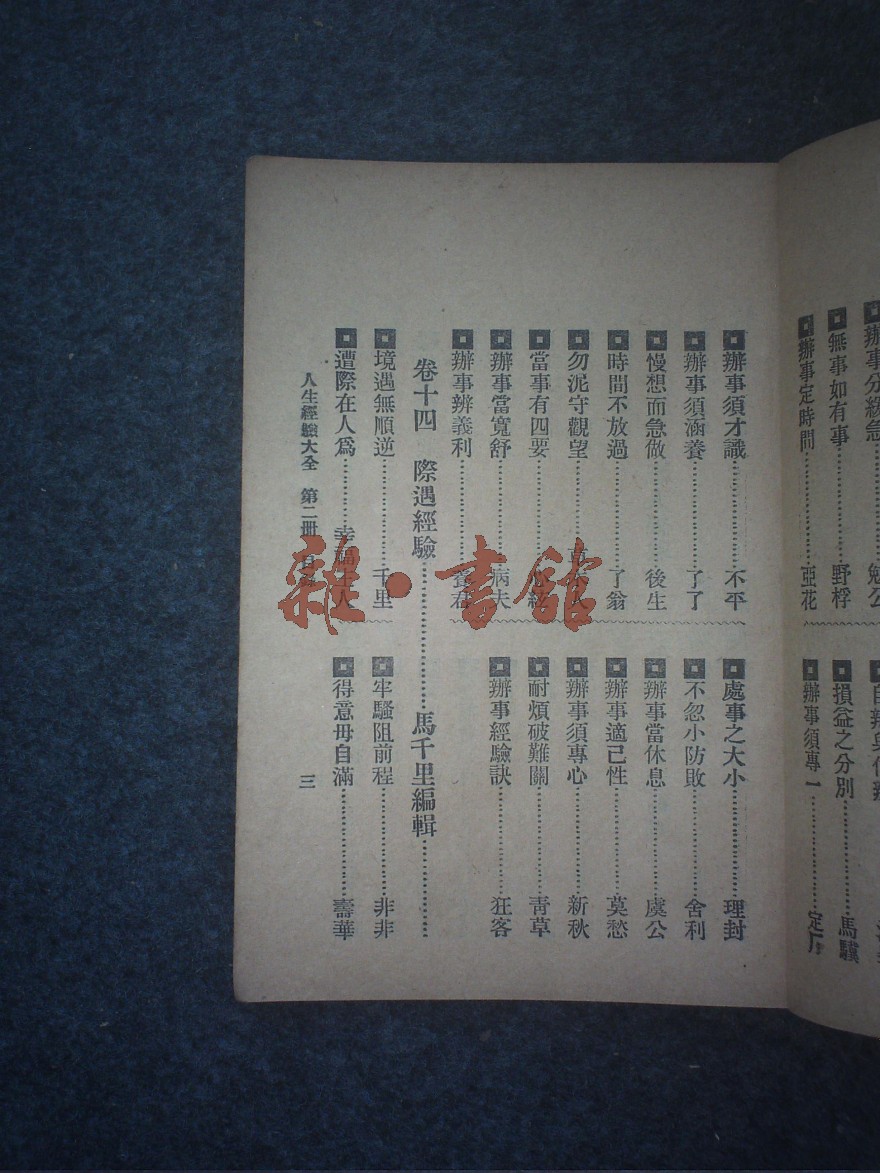 辦事分緩急
無事如有事……野桴
辦事定時間……亞花
損益之分別……馬驥
辦事須專一……定
辦事須才識……不平
辦事須涵養……了了
慢想而急做……後生
時間不放過……了翁
勿泥守觀望
當事有四要
辦事當寬舒……病夫
辦事辨義利……養君
處事之大小……理封
不忽小防敗……舍利
辦事當休息……虞公
辦事適己性……莫愁
辦事須專心……新秋
耐煩破難關……靑草
辦事經驗訣……狂客
卷十四 際遇經驗……馬千里編輯……
境遇無順逆……千里
遭際在人爲……幸福主人
牢騷阻前程……非非
得意毋自滿……壽華
人生經驗大全 第二冊 目錄 三
雜·書舘